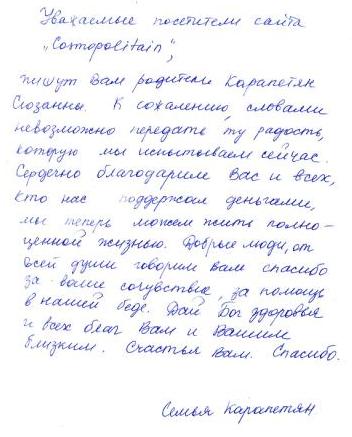 Уважаемые посетители сайта
„Cosmopolitain",
пишут Вам родители Карапетян
Сюзанны. К сожалению, словами
невозможно передать ту радость,
которую мы испытываем сейчас.
Сердечно благодарим Вас и всех,
кто нас поддержал деньгами,
мы теперь можем жить полно-
ценной жизнью. Добрые люди, от
всей души говорим вам спасибо
за ваше сочувствие, за помощь
в нашей беде. Дай Бог здоровья
и всех благ Вам и Вашим
близким. Счастья Вам. Спасибо.
Семья Карапетян